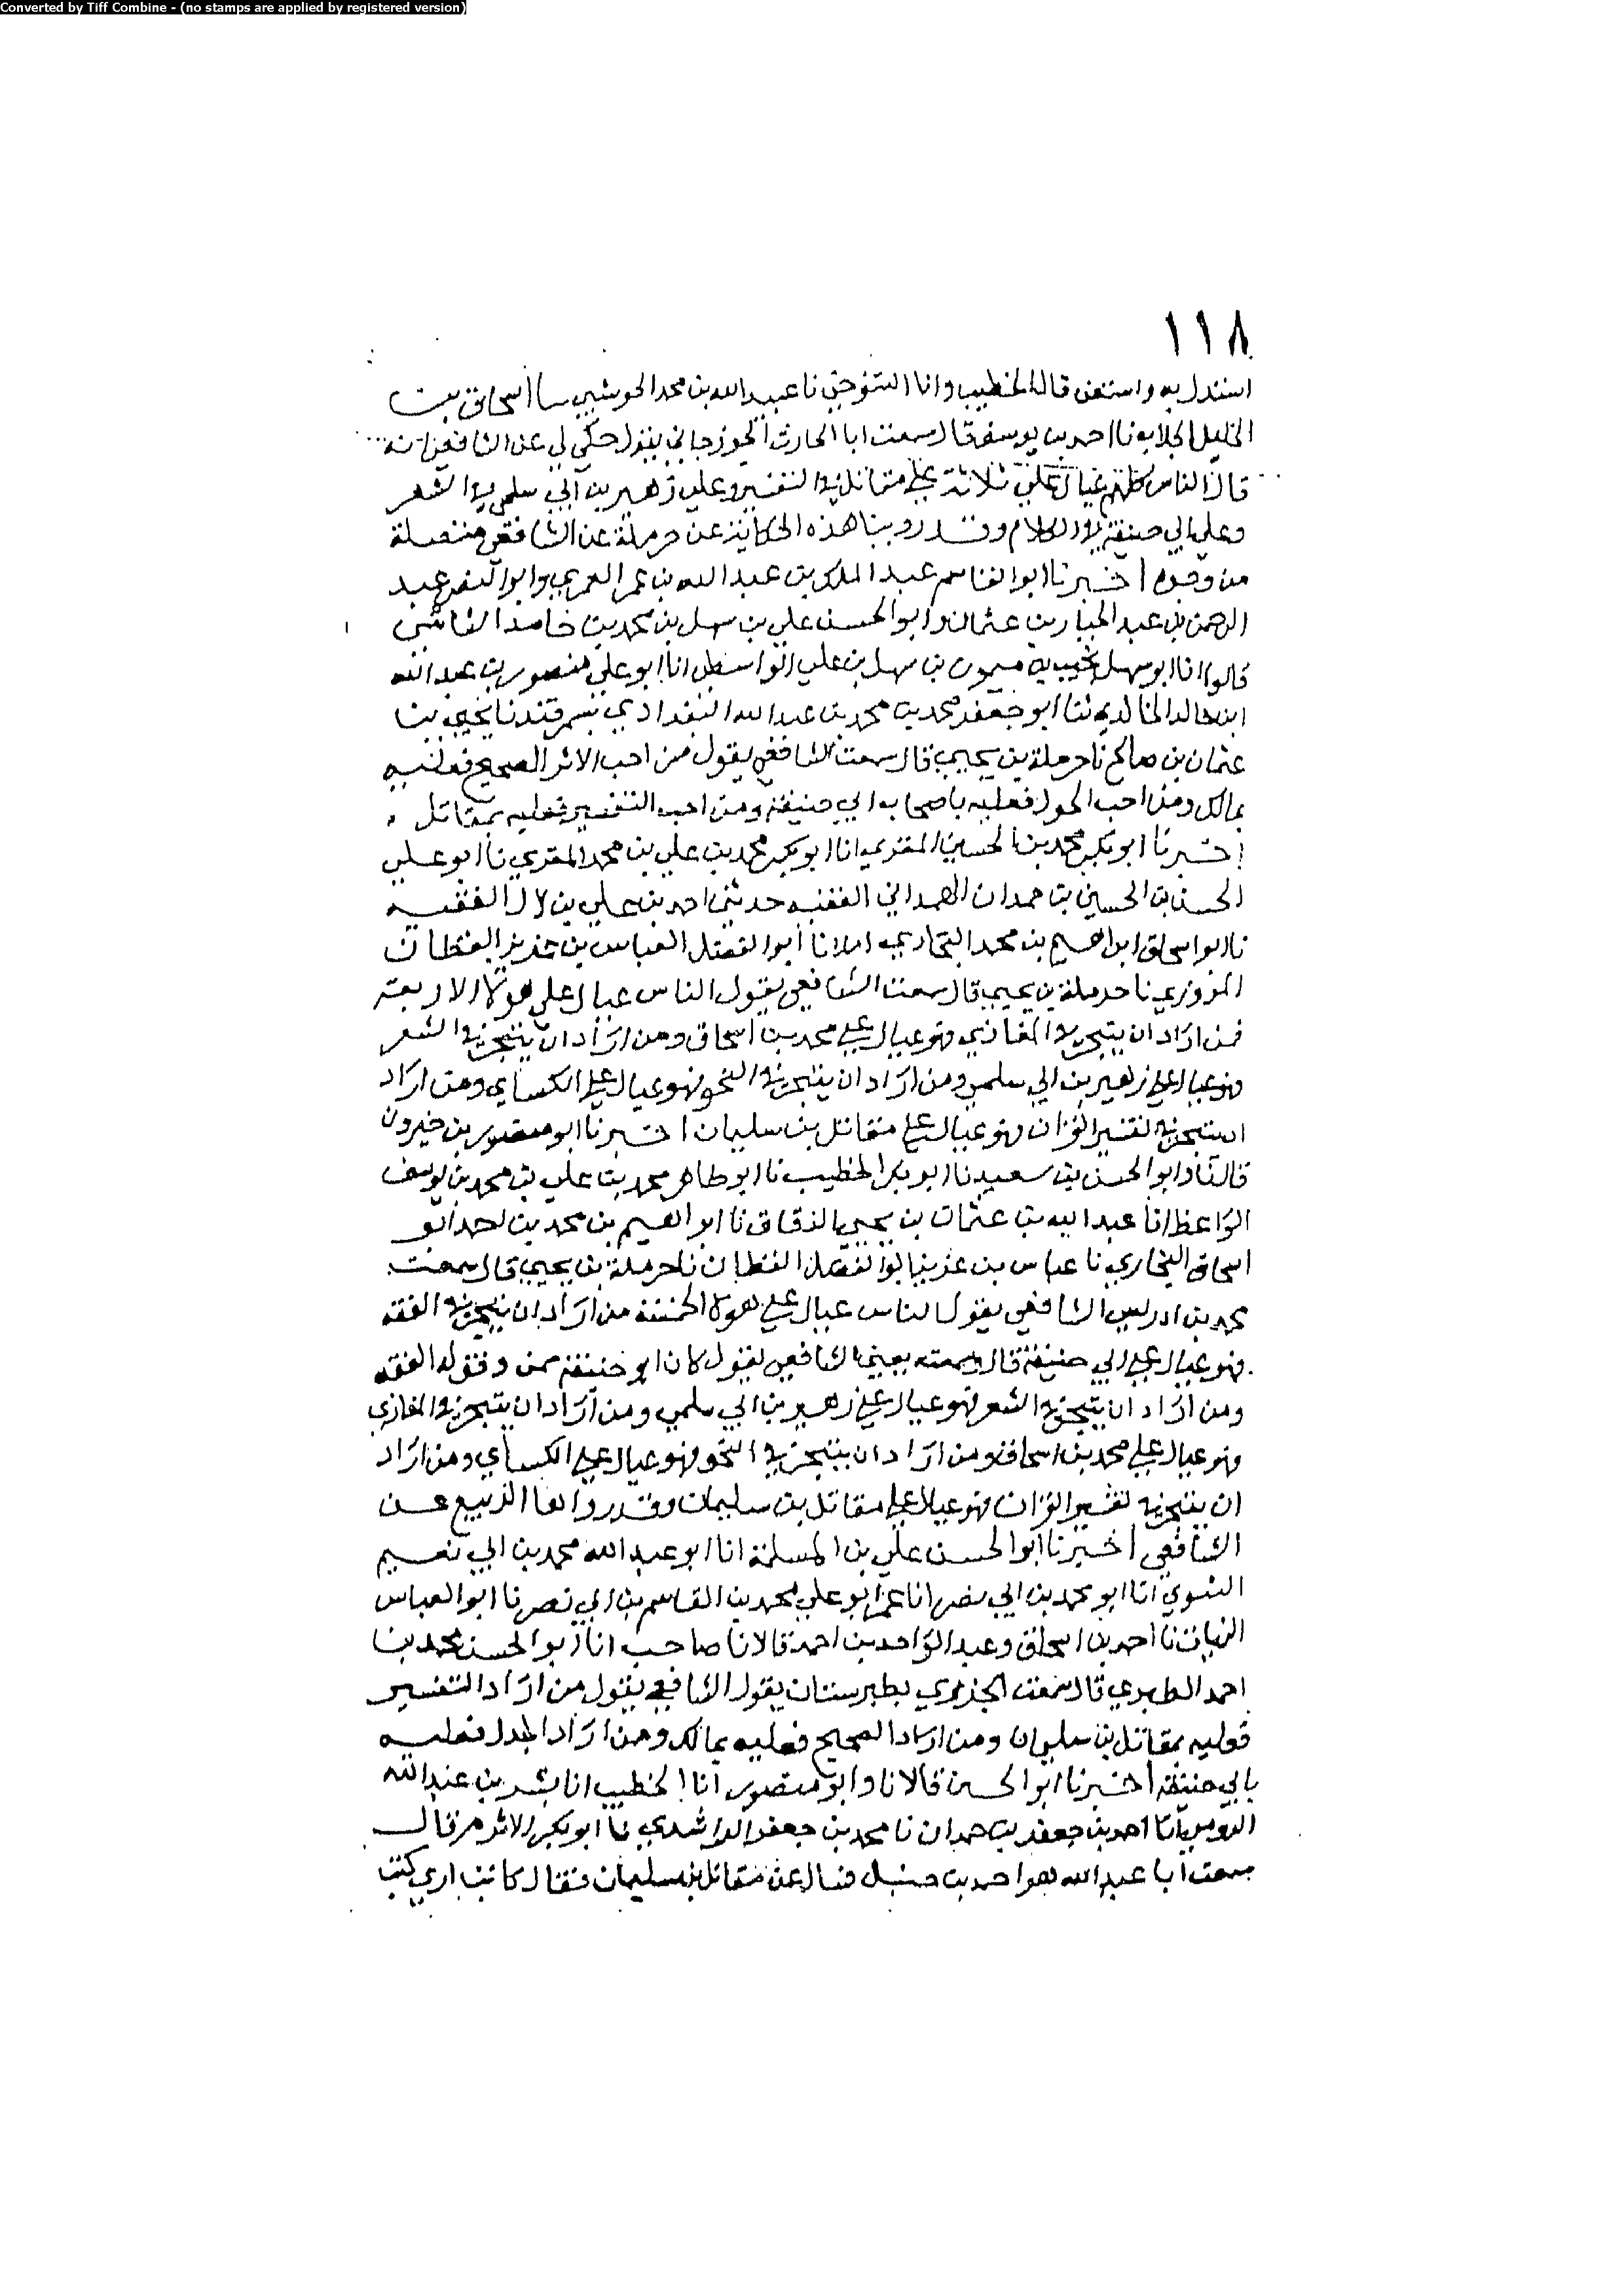 Converted by Tiff Combine - (no stamps are applied by registered version)
١١٨
استدل به واستغن قال الخطيب وانا التنوخي نا عبيد الله بن محمد الحوشبي نا اسحاق بن
الخليل الجلاب نا احمد بن يوسف قال سمعت ابا الحارث الجوزجاني يقول حكي لي عن الشافعي انه
قال الناس كلهم عيال علي ثلاثة علي مقاتل في التفسير وعلي زهير بن ابي سلمي في الشعر
وعلي ابي حنيفة في الكلام وقد روينا هذه الحكاية عن حرملة عن الشافعي متصلة
من وجوه اخبرنا ابو القاسم عبد الملك بن عبد الله بن عمر العمري وابو الفتح عبد
الرحمن بن عبد الجبار بن عثمان وابو الحسن علي بن سهل بن محمد بن حامد الشاشي
قالوا انا ابو سهل نجيب بن ميمون بن سهل بن علي الواسطي انا ابو علي منصور بن عبد الله
ابن خالد الخالدي ثنا ابو جعفر محمد بن محمد بن عبد الله البغدادي بسمرقند نا يحيي بن
عثمان بن صالح نا حرملة بن يحيي قال سمعت الشافعي يقول من احب الاثر الصحيح فعليه
بمالك ومن احب الجدل فعليه باصحاب ابي حنيفة ومن احب التفسير فعليه بمقاتل
اخبرنا ابو بكر محمد بن الحسين المقري انا ابو بكر محمد بن علي بن محمد المقري نا ابو علي
الحسن بن الحسين بن حمدان الهمداني الفقيه حدثني احمد بن علي بن لال الفقيه
نا ابو اسحاق ابراهيم بن محمد البخاري املانا ابو الفضل العباس بن عزيز القطان
المروزي نا حرملة بن يحيي قال سمعت الشافعي يقول الناس عيال علي هولا الاربعة
فمن اراد ان يتبحر في المغازي فهو عيال علي محمد بن اسحاق ومن اراد ان يتبحر في الشعر
فهو عيال علي زهير بن ابي سلمي ومن اراد ان يتبحر في النحو فهو عيال علي الكساي ومن اراد
ان يتبحر في تفسير القران فهو عيال علي مقاتل بن سليمان اخبرنا ابو منصور بن خيرون
قال نا وابو الحسن بن سعيد نا ابو بكر الخطيب نا ابو طاهر محمد بن علي بن محمد بن يوسف
الواعظ انا عبد الله بن عثمان بن يحيي الدقاق نا ابراهيم بن محمد بن احمد ابو
اسحاق البخاري نا عباس بن عزيز ابو الفضل القطان نا حرملة بن يحيي قال سمعت
محمد بن ادريس الشافعي يقول الناس عيال علي هولا الخمسة من اراد ان يتبحر في الفقه
فهو عيال علي ابي حنيفة قال وسمعته يعني الشافعي يقول كان ابو حنيفة ممن وفق له الفقه
ومن اراد ان يتبحر في الشعر فهو عيال علي زهير بن ابي سلمي ومن اراد ان يتبحر في المغازي
فهو عيال علي محمد بن اسحاق ومن اراد ان يتبحر في النحو فهو عيال علي الكساي ومن اراد
ان يتبحر في تفسير القران فهو عيال علي مقاتل بن سليمان وقد رواها الربيع عن
الشافعي اخبرنا ابو الحسن علي بن المسلمة انا ابو عبد الله محمد بن ابي نعيم
النسوي انا ابو محمد بن ابي نصر انا عمر ابو علي محمد بن القاسم بن ابي نصر نا ابو العباس
الزيات نا احمد بن اسحاق وعبد الواحد بن احمد قالا نا صاحب انا ابو الحسن محمد بن
احمد الطبري قال سمعت الجزري بطبرستان يقول الشافعي يقول من اراد التفسير
فعليه بمقاتل بن سليمان ومن اراد الصحيح فعليه بمالك ومن اراد الجدل فعليه
بابي حنيفة اخبرنا ابو الحسن قالا نا وابو منصور انا الخطيب انا بشر بن عبد الله
الرومي انا احمد بن جعفر بن حمدان نا محمد بن جعفر الراشدي نا ابو بكر الاثرم قال
سمعت ابا عبد الله هو احمد بن حنبل فسال عن مقاتل بن سليمان فقال كانت اري كتب